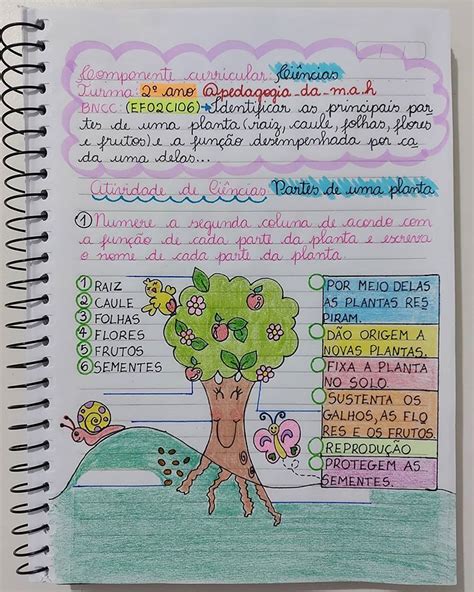 Componente curricular: Ciências
Turma: 2º ano @pedagogia-da-m.a.h
BNCC: (EF02CI06) → Identificar as principais par
tes de uma planta (raiz, caule, folhas, flores
e frutos) e a função desempenhada por ca
da uma delas...
Atividade de Ciências Partes de uma planta
1 Numere a segunda coluna de acordo com
a função de cada parte da planta e escreva
o nome de cada parte da planta.
1 RAIZ
2 CAULE
3 FOLHAS
4 FLORES
5 FRUTOS
6 SEMENTES
POR MEIO DELAS
AS PLANTAS RES
PIRAM.
DÃO ORIGEM A
NOVAS PLANTAS.
FIXA A PLANTA
NO SOLO
SUSTENTA OS
GALHOS, AS FLO
RES E OS FRUTOS
REPRODUÇÃO
PROTEGEM AS
SEMENTES.